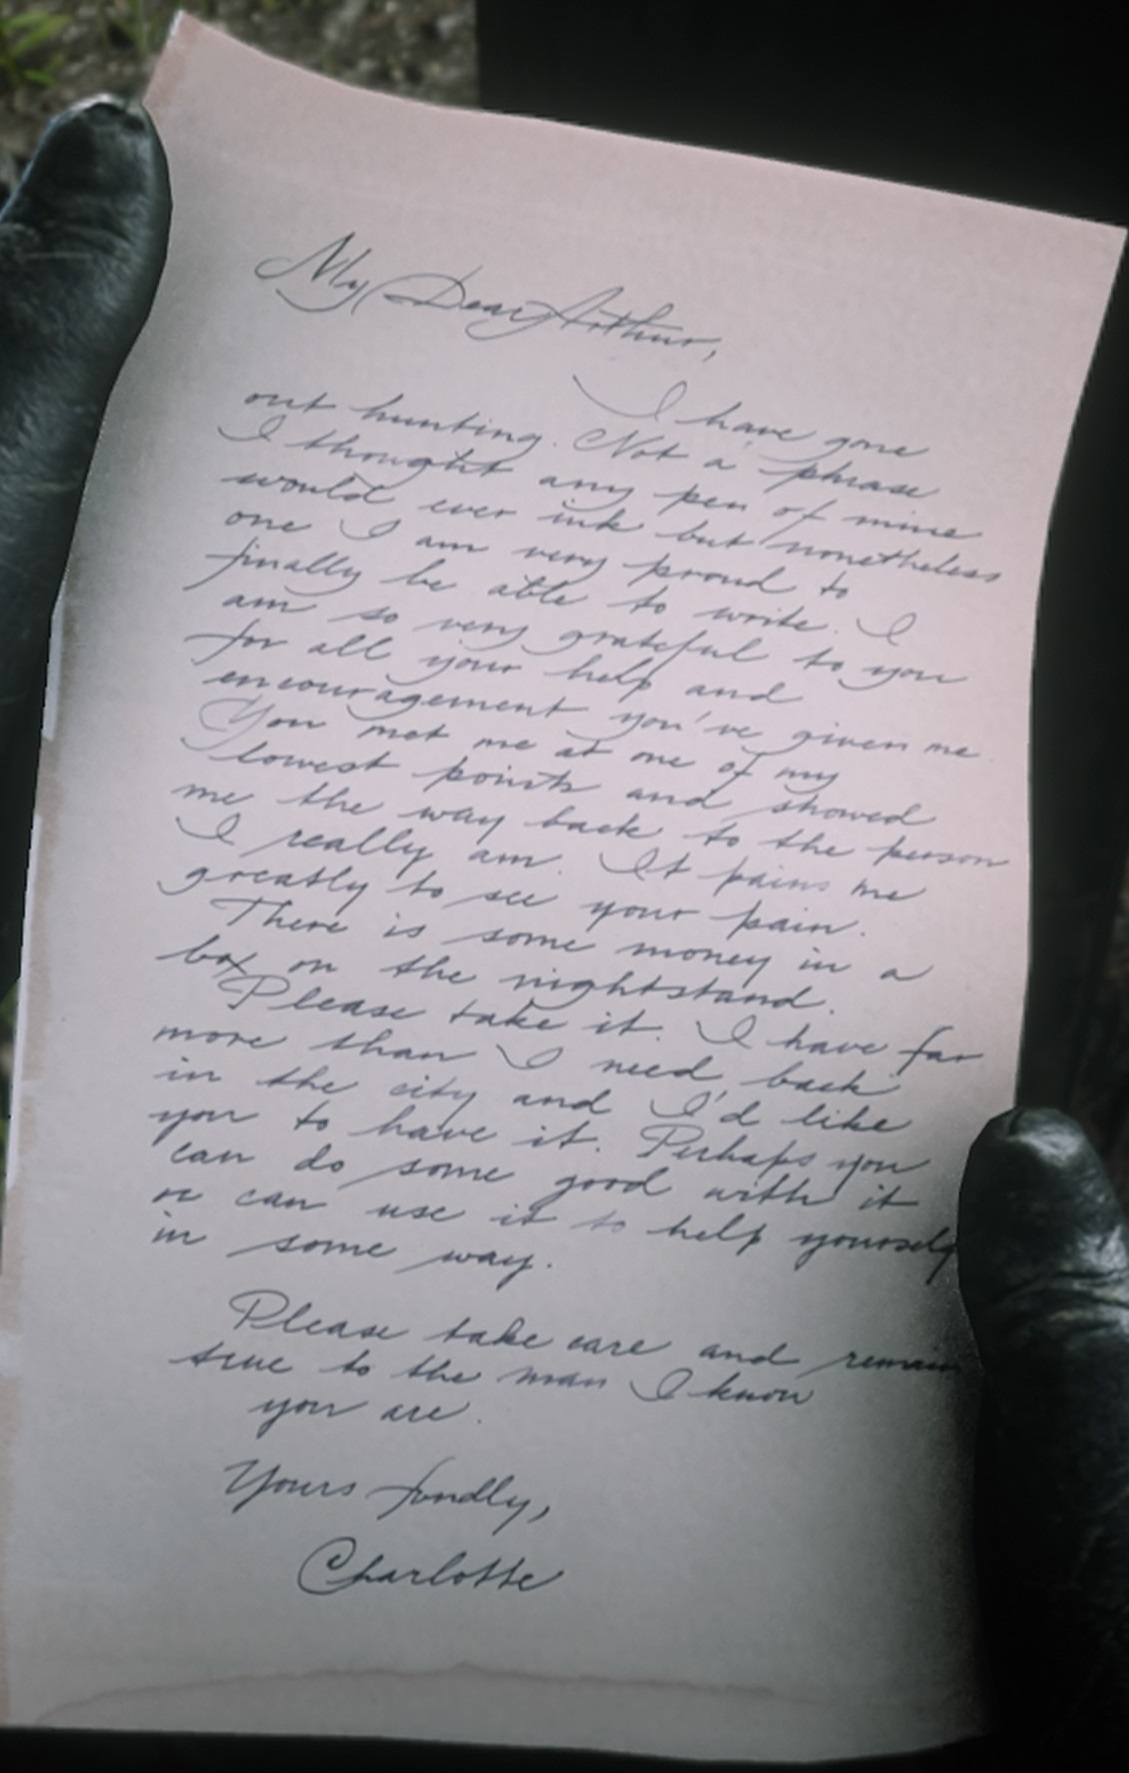 My Dear Arthur,
I have gone
out hunting. Not a phrase
I thought any pen of mine
would ever ink but nonetheless
one I am very proud to
finally be able to write. I
am so very grateful to you
for all your help and
encouragement you've given me.
You met me at one of my
lowest points and showed
me the way back to the person
I really am. It pains me
greatly to see your pain.
There is some money in a
box on the nightstand.
Please take it. I have far
more than I need back
in the city and I'd like
you to have it. Perhaps you
can do some good with it
or can use it to help yourself
in some way.
Please take care and remain
true to the man I know
you are.
Yours fondly,
Charlotte